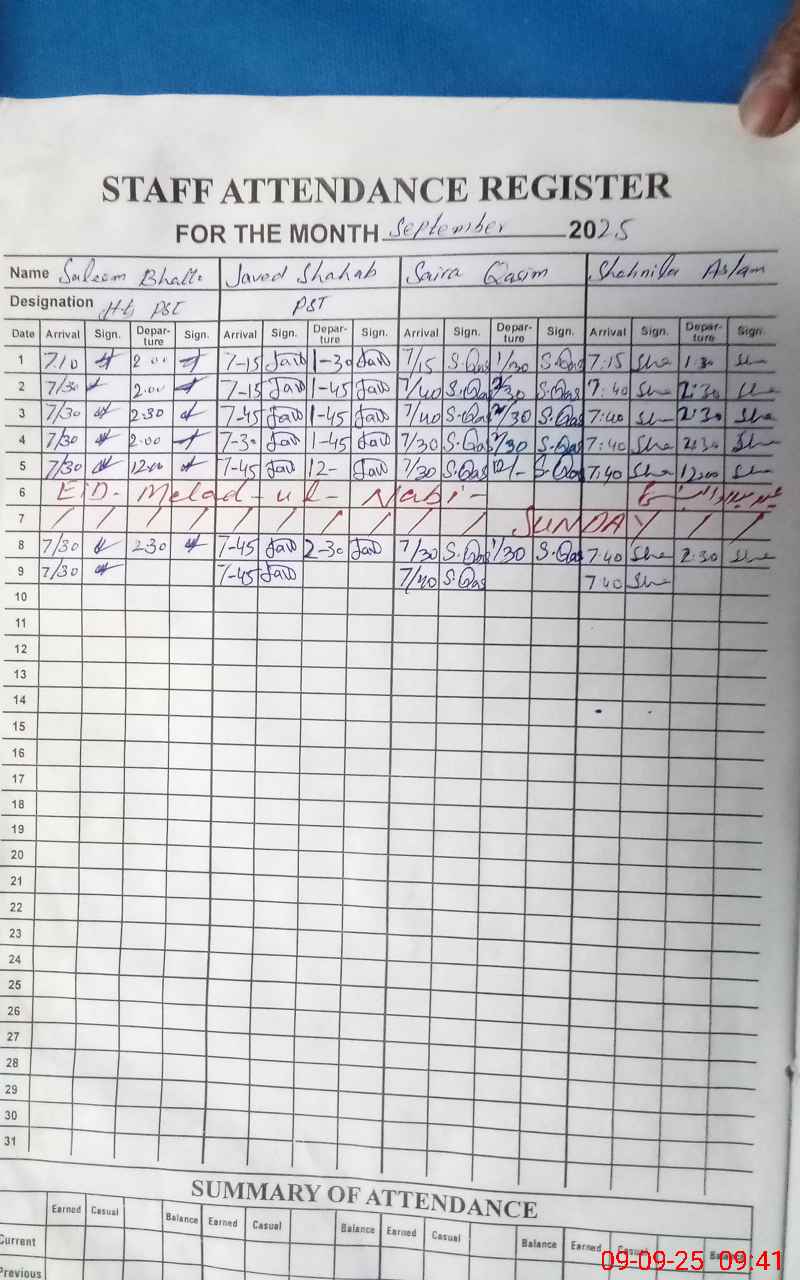 STAFF ATTENDANCE REGISTER
FOR THE MONTH September 2025
Name Saleem Bhatti Javed Shahab Saira Qasim Shahnila Aslam
Designation Ht PST PST
Date Arrival Sign. Depar-ture Sign. Arrival Sign. Depar-ture Sign. Arrival Sign. Depar-ture Sign. Arrival Sign. Depar-ture Sign.
1 7.10 2.00 7-15 Jav 1-30 Jav 7/15 S.Qas 1/30 S.Qas 7:15 Sha 1:30 Sha
2 7/30 2.00 7-15 Jav 1-45 Jav 7/40 S.Qas 2/30 S.Qas 7:40 Sha 2:30 Sha
3 7/30 2.30 7-45 Jav 1-45 Jav 7/40 S.Qas 2/30 S.Qas 7:40 Sha 2:30 Sha
4 7/30 2.00 7-30 Jav 1-45 Jav 7/30 S.Qas 2/30 S.Qas 7:40 Sha 2:30 Sha
5 7/30 12.00 7-45 Jav 12- Jav 7/30 S.Qas 12/- S.Qas 7:40 Sha 12:00 Sha
6 EID- Melad-ul- Nabi-
7 / / / / / / / / / / SUNDAY / /
8 7/30 2.30 7-45 Jav 2-30 Jav 7/30 S.Qas 1/30 S.Qas 7:40 Sha 2:30 Sha
9 7/30 7-45 Jav 7/40 S.Qas 7 40 Sha
10
11
12
13
14
15
16
17
18
19
20
21
22
23
24
25
26
27
28
29
30
31
SUMMARY OF ATTENDANCE
Earned Casual Balance Earned Casual Balance Earned Casual Balance Earned Casual Balance
Current
Previous
09-09-25 09:41